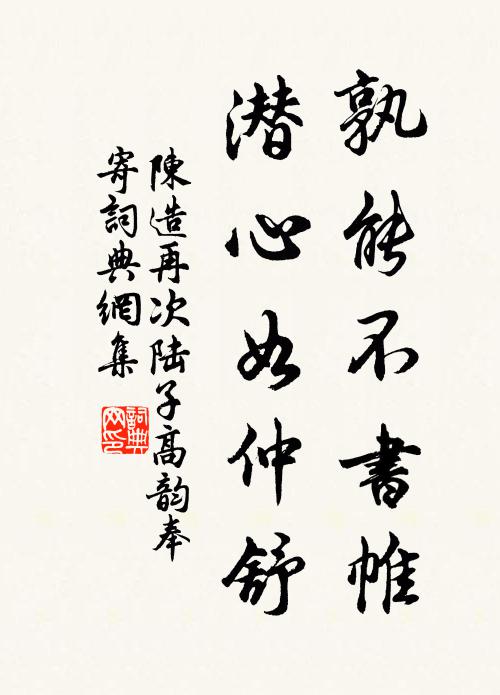 孰能不書帷
潛心如仲舒
陳造再次陸子高韵奉
寄詞典網集
詞典
网印